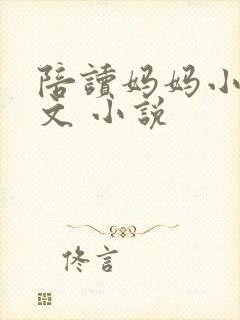 陪讀妈妈小
文 小說
佟言